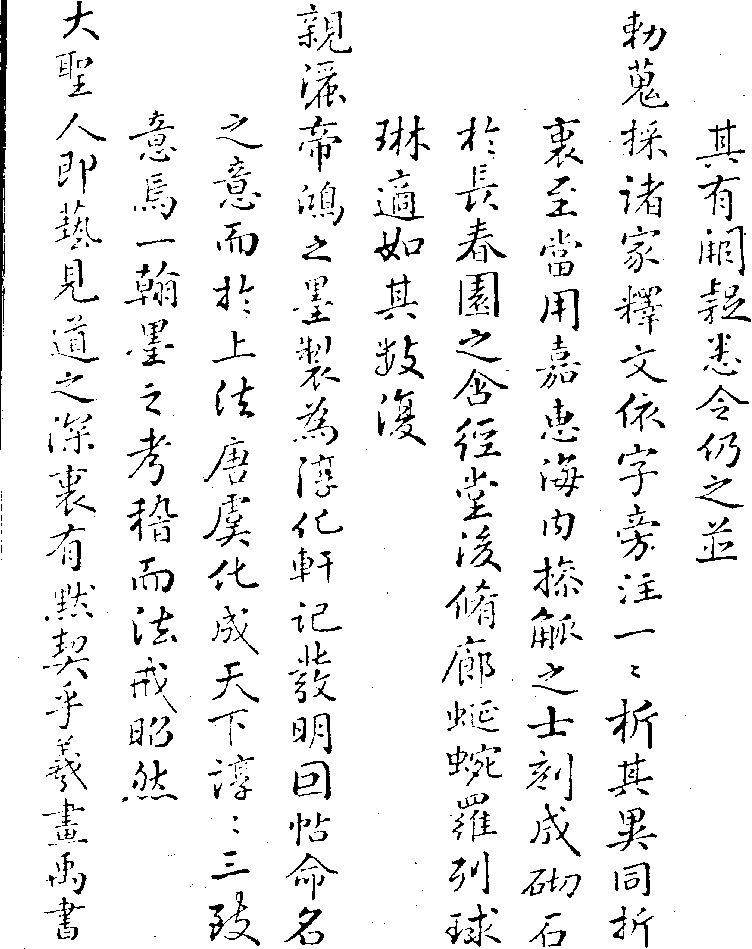 其有闕疑悉令仍之並
勅蒐採諸家釋文依字旁注一〻析其異同折
衷至當用嘉惠海內操觚之士刻成砌石
於長春園之含經堂後脩廊蜒蜿羅列球
琳適如其數復
親灑帝鴻之墨製為淳化軒記發明回帖命名
之意而於上法唐虞化成天下諄〻三致
意焉一翰墨之考稽而法戒昭然
大聖人即藝見道之深衷有默契乎羲畫禹書